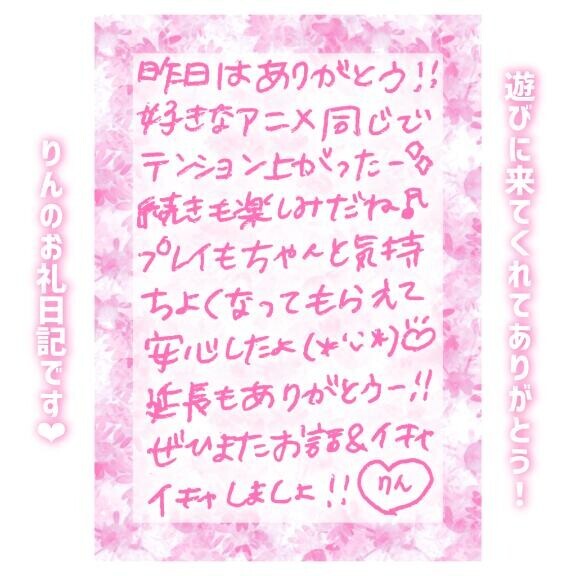 遊びに来てくれてありがとう！
昨日はありがとう!!
好きなアニメ同じで
テンション上がったー
続きも楽しみだね♪
プレイもちゃんと気持
ちよくなってもらえて
安心したよ(*'ω'*)♡
延長もありがとうー!!
ぜひまたお話&イチャ
イチャしましょ!!
りん
りんのお礼日記です❤